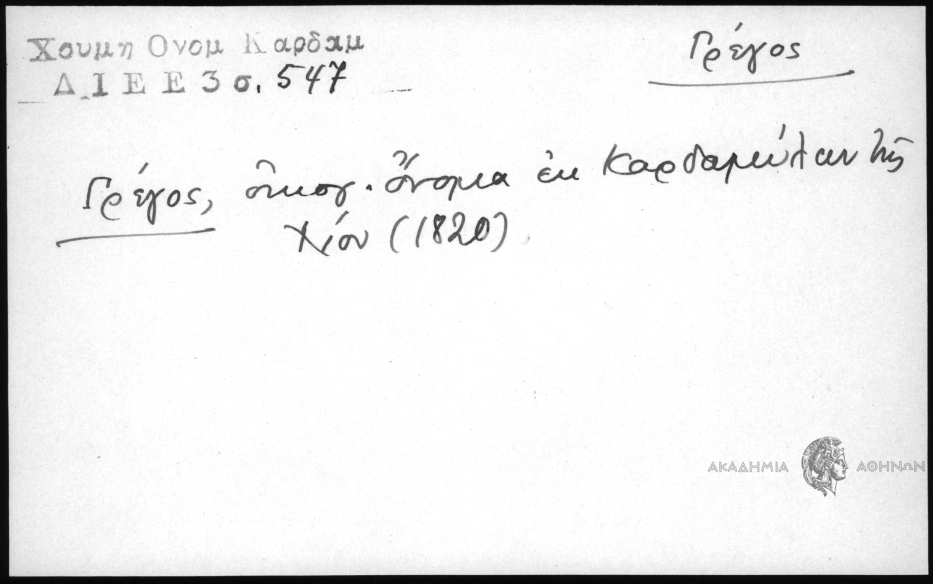 Χουμη Ονομ Καρδαμ
Δ.Ι Ε Ε 3 σ. 547
Γρέγος
Γρέγος, οἰκογ. ὄνομα ἐκ Καρδαμύλων τῆς
Χίου (1820)
ΑΚΑΔΗΜΙΑ ΑΘΗΝΩΝ